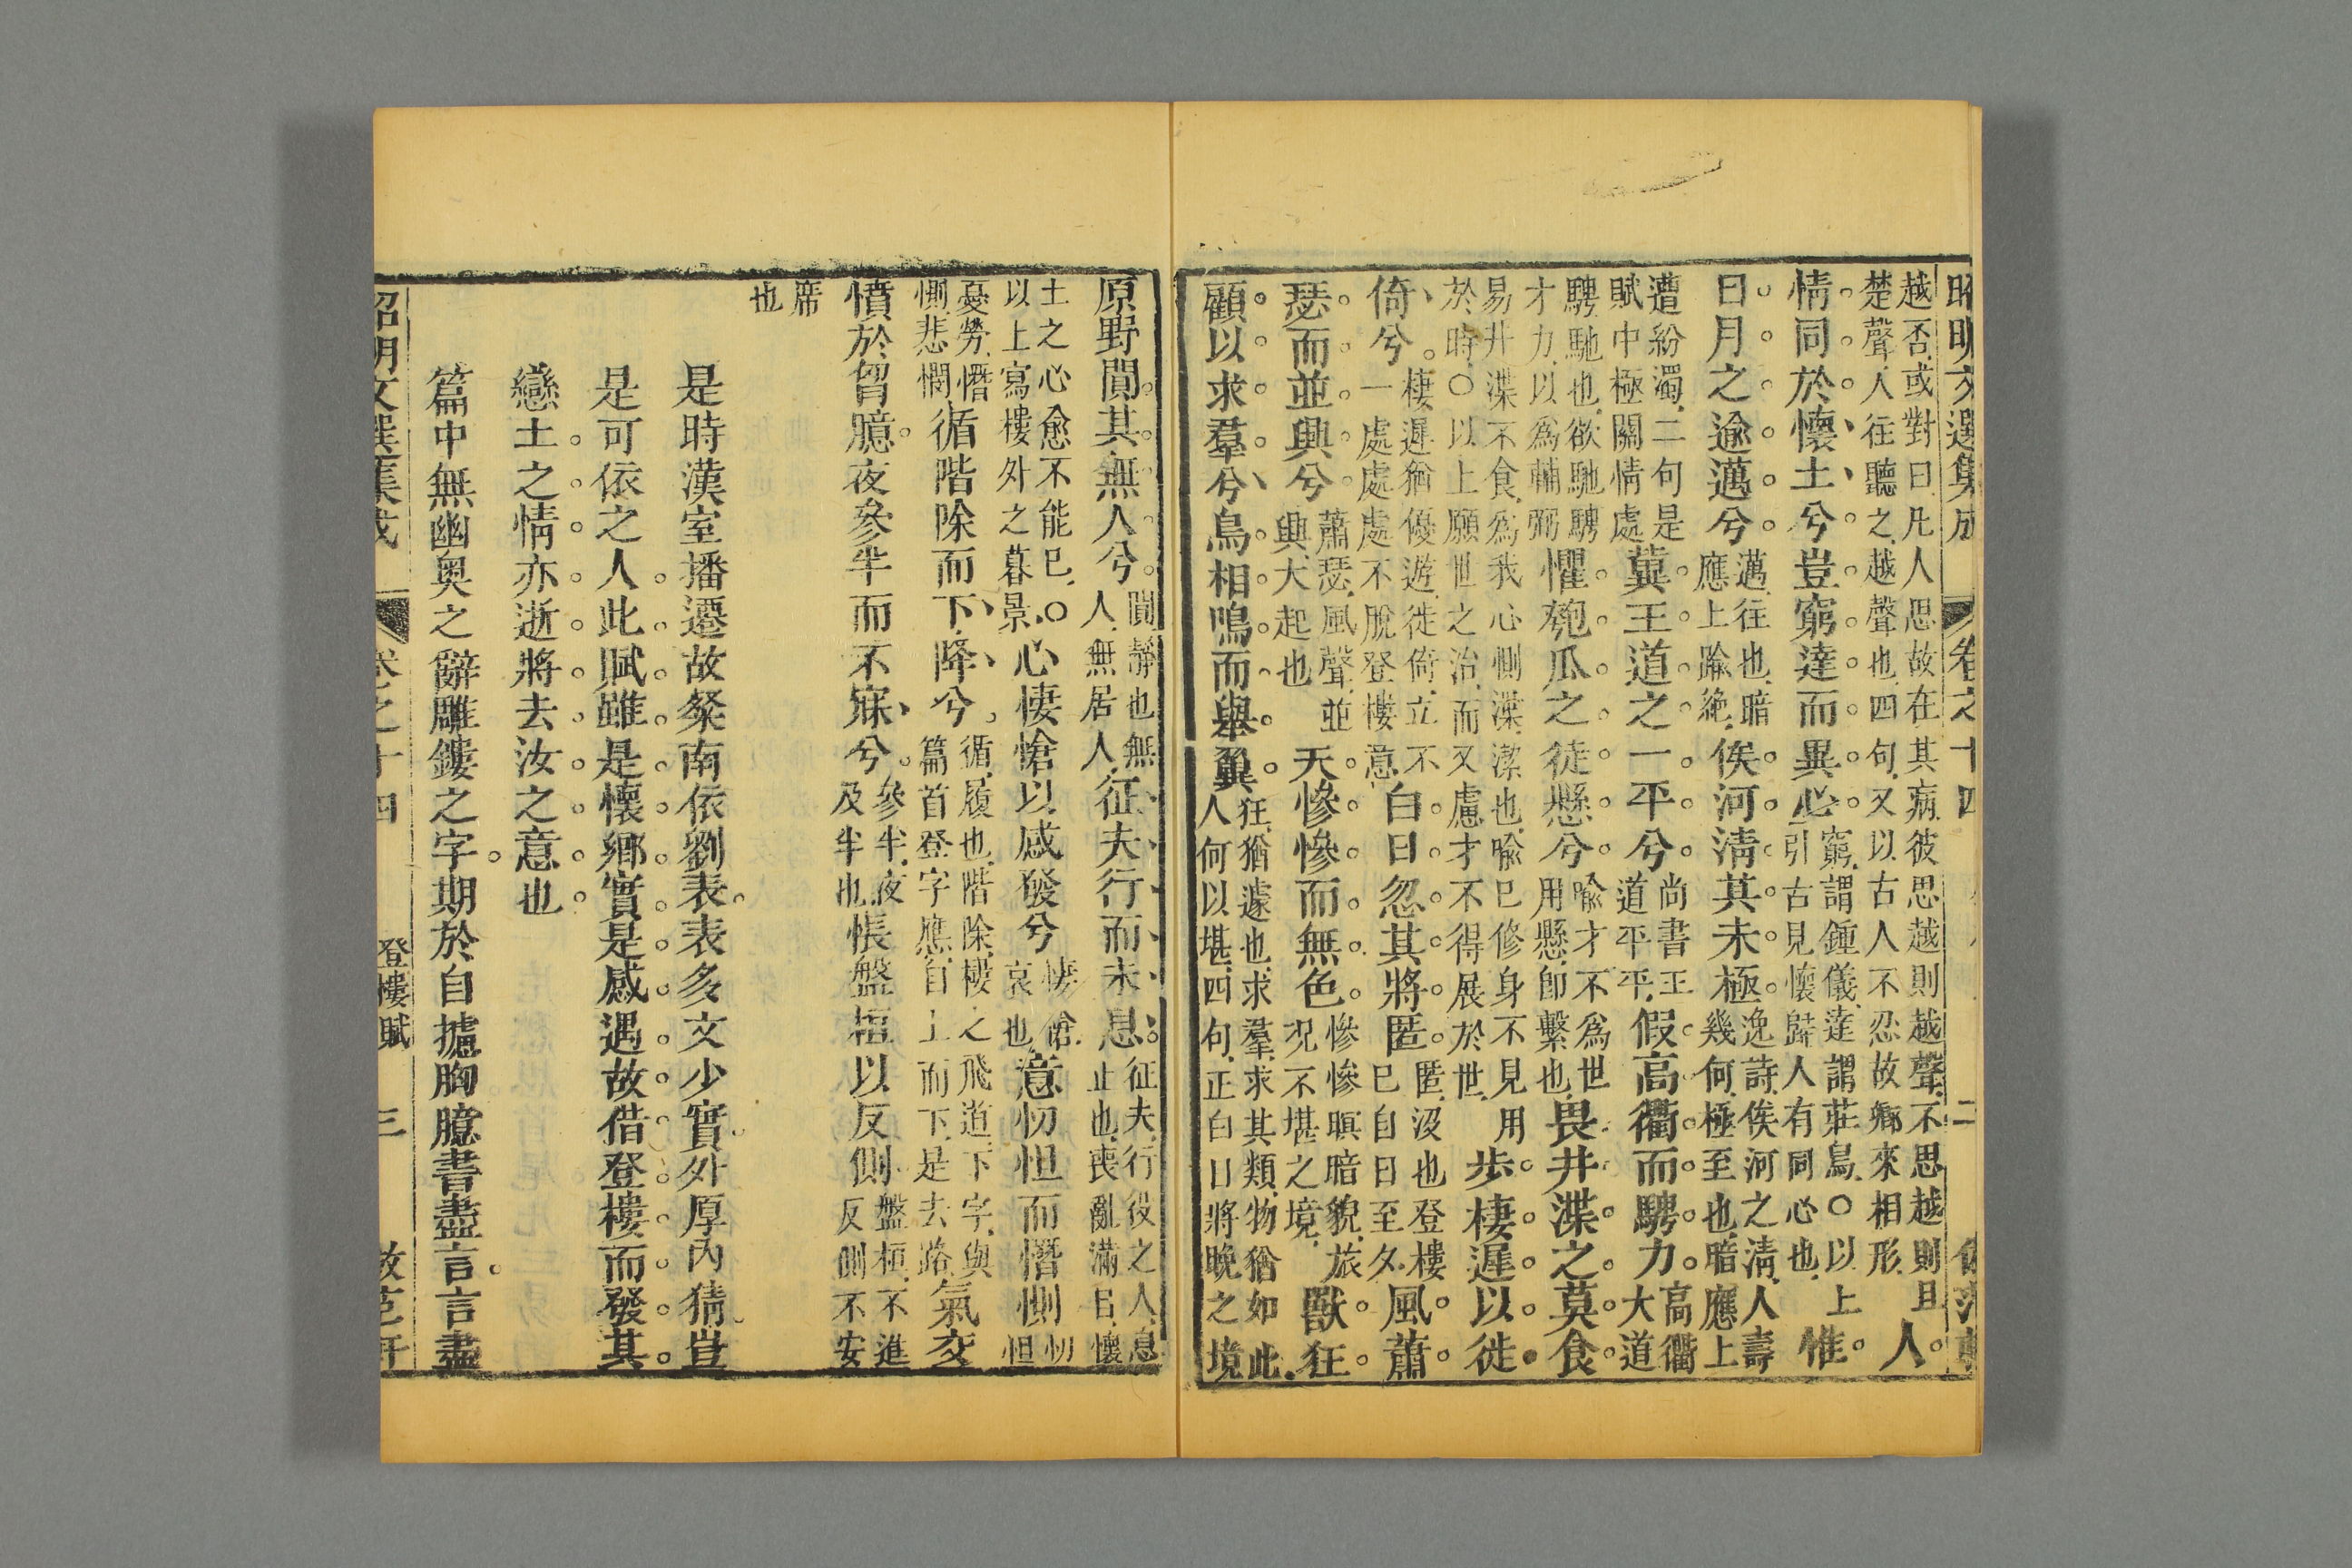 昭明文選集成 卷之十四 二
越否或對曰凡人思故在其病彼思越則越聲不思越則且
楚聲人往聽之越聲也四句又以古人不忍故鄉來相形
人
情同於懷土兮豈窮達而異心
窮謂鍾儀達謂莊舄〇以上
引古見懷歸人有同心也
惟
日月之逾邁兮
邁往也暗
應上踰絶
俟河清其未極
逸詩俟河之清人壽
幾何極至也暗應上
遭紛濁二句是
賦中極關情處
冀王道之一平兮
尚書王
道平平
假高衢而騁力
高衢
大道
騁馳也欲馳騁
才力以爲輔弼
懼匏瓜之徒懸兮
喻才不爲世
用懸卽繫也
畏井渫之莫食
易井渫不食爲我心惻渫潔也喻已修身不見用
於時〇以上願世之治而又慮才不得展於世
步棲遲以徙
倚兮
棲遲猶優遊徙倚立不
一處處處不脫登樓意
白日忽其將匿
匿沒也登樓
已自日至夕
風蕭
瑟而並興兮
蕭瑟風聲並
興大起也
天慘慘而無色
慘慘暝暗貌旅
況不堪之境
獸狂
顧以求羣兮鳥相鳴而舉翼
狂猶遽也求羣求其類物猶如此
人何以堪四句正白日將晚之境
原野闃其無人兮
闃靜也無
人無居人
征夫行而未息
征夫行役之人息
止也喪亂滿目懷
土之心愈不能已〇
以上寫樓外之暮景
心悽愴以感發兮
悽愴
哀也
意忉怛而憯惻
忉怛
憂勞憯
惻悲憫
循階除而下降兮
循履也階除樓之飛道下字與
篇首登字應自上而下是去路
氣交
憤於胷臆
夜參半而不寐兮
參半夜
及半也
悵盤桓以反側
盤桓不進
反側不安
席
也
是時漢室播遷故粲南依劉表表多文少實外厚內猜豈
是可依之人此賦雖是懷鄉實是感遇故借登樓而發其
戀土之情亦逝將去汝之意也
篇中無幽奧之辭雕鏤之字期於自攄胸臆書盡言言盡
昭明文選集成 卷之十四 登樓賦 三